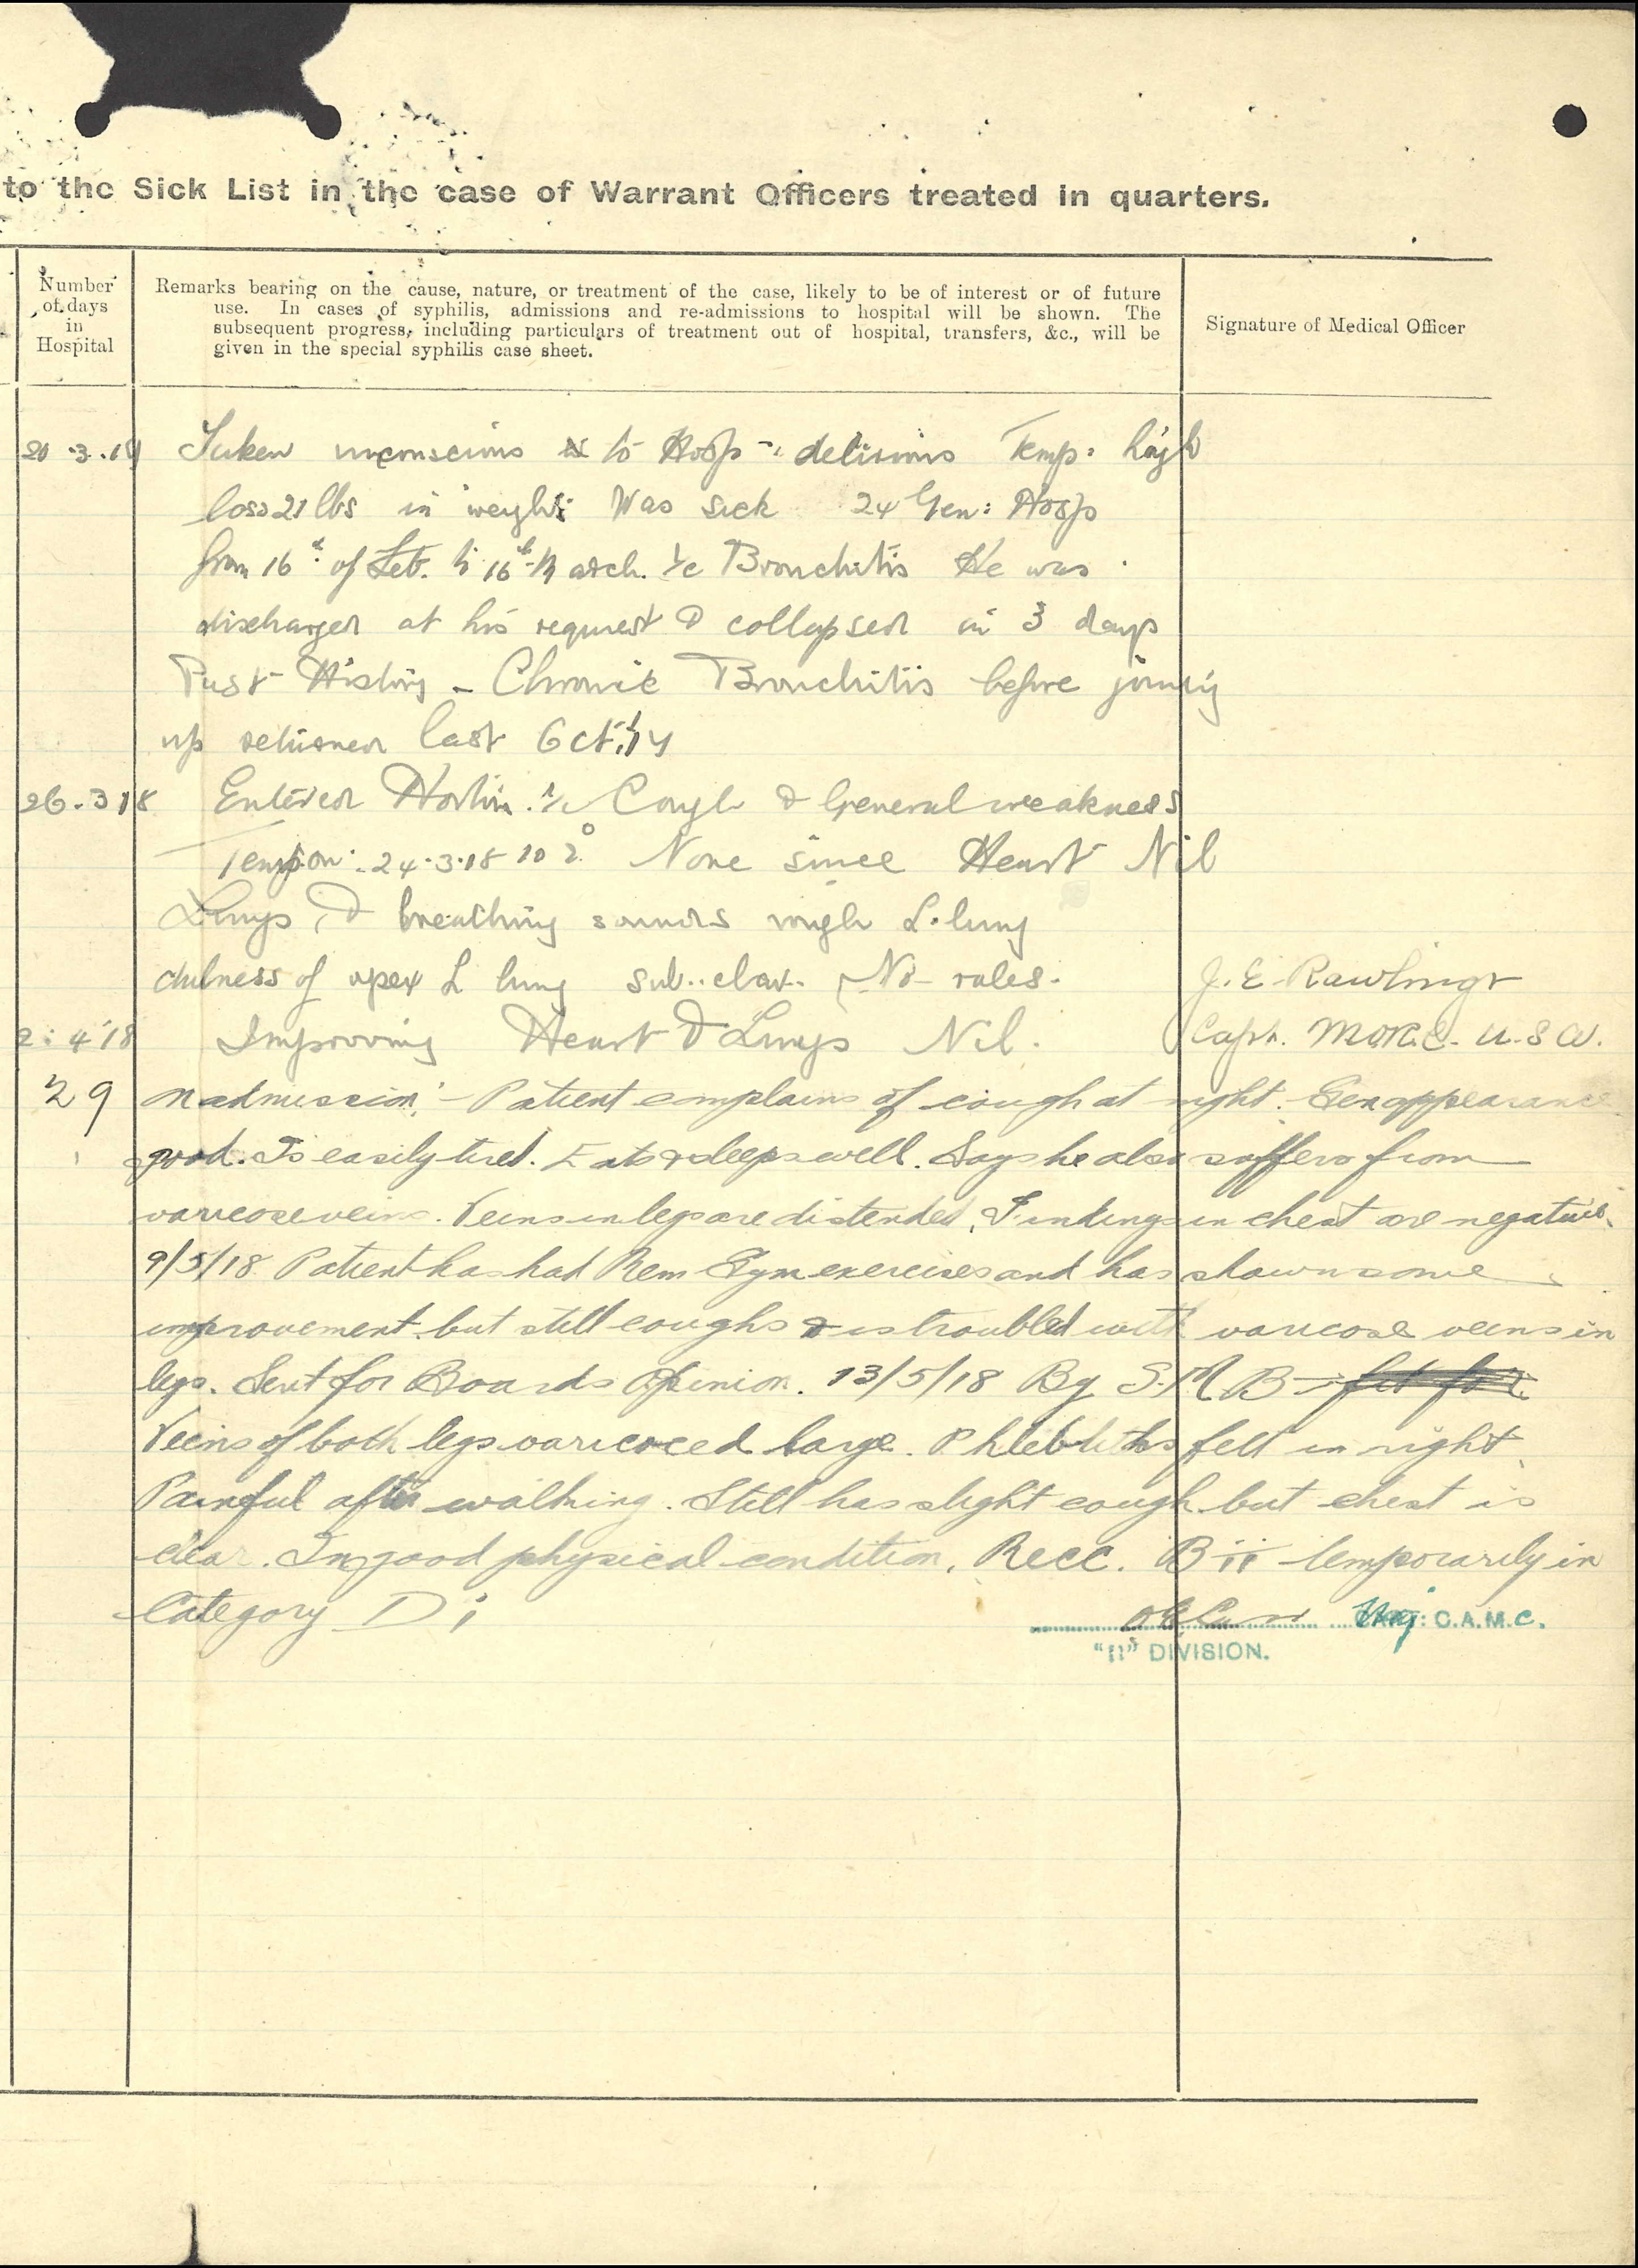 to the Sick List in the case of Warrant Officers treated in quarters.
Number of days in Hospital
Remarks bearing on the cause, nature, or treatment of the case, likely to be of interest or of future
use. In cases of syphilis, admissions and re-admissions to hospital will be shown. The
subsequent progress, including particulars of treatment out of hospital, transfers, &c., will be
given in the special syphilis case sheet.
Signature of Medical Officer
20.3.18 Taken unconscious to Hosp - delirious Temp. high
loss 21 lbs in weight Was sick 24 Gen: Hosp
from 16th of Feb. to 16th March. Bronchitis He was
discharged at his request & collapsed in 3 days
Past History - Chronic Bronchitis before joining
up last Oct.
26.3 18 Entered Horton. Cough & General weakness
Temp on. 24.3.18 102° None since Heart Nil
Lungs, & breathing sounds rough L. lung
dulness of apex L lung sub..clav. No rales.
J. E. Rawlings
2.4.18 Improving Heart & Lungs Nil.
Capt. M.O.R.C. U.S.A.
29 n admission:- Patient complains of cough at night. Gen appearance
good. Is easily tired. Eats & sleeps well. Says he also suffers from
varicose veins. Veins in legs are distended. Findings in chest are negative.
9/5/18 Patient has had Rem Gym exercises and has shown some
improvement but still coughs & is troubled with varicose veins in
legs. Sent for Boards Opinion. 13/5/18 By S.M.B - fit for
Veins of both legs varicosed large. Phleboliths felt in right
Painful after walking. Still has slight cough but chest is
clear. In good physical condition. Recc. B ii temporarily in
Category D i
Maj: C.A.M.C.
"D" DIVISION.